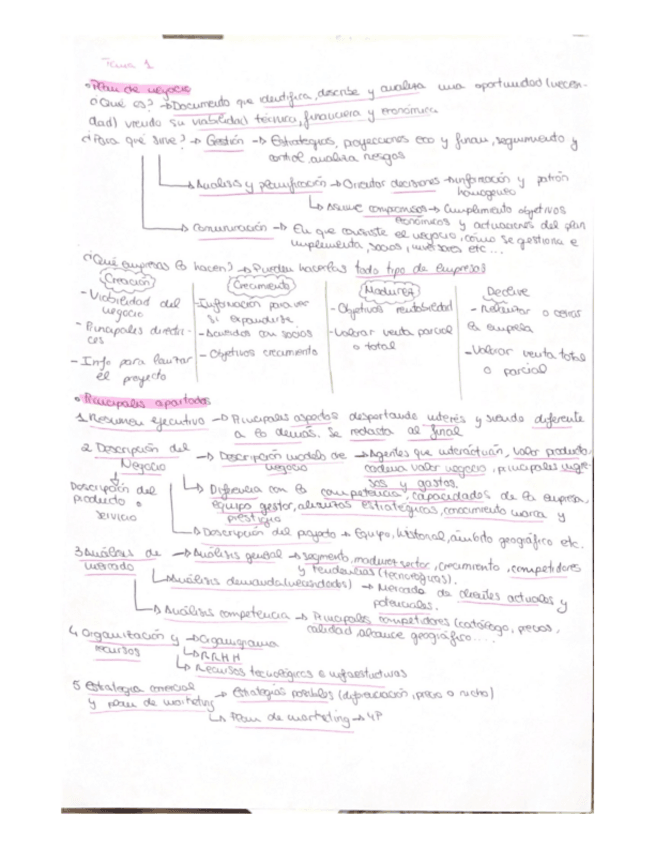 Tema 1
• Plan de negocio
¿Qué es? → Documento que identifica, describe y analiza una oportunidad (necesi-
dad) viendo su viabilidad técnica, financiera y económica
¿Para qué sirve? → Gestión → Estrategias, proyecciones eco y finan, seguimiento y
control, analiza riesgos
→ Análisis y planificación → Orientar decisiones → información y patrón
homogéneo
→ Asume compromisos → Cumplimiento objetivos
económicos y actuaciones del plan
→ Comunicación → En que consiste el negocio, cómo se gestiona e
implementa, socios, inversores etc...
¿Qué empresas lo hacen? → Pueden hacerlas todo tipo de empresas
Creación Crecimiento Madurez Declive
- Viabilidad del
negocio
- Principales directri-
ces
- Info para lanzar
el proyecto
- Información para ver
si expandirse
- Acuerdos con socios
- Objetivos crecimiento
- Objetivos rentabilidad
- Valorar venta parcial
o total
- Reflotar o cerrar
la empresa
- Valorar venta total
o parcial
• Principales apartados
1. Resumen ejecutivo → Principales aspectos despertando interés y siendo diferente
a lo demás. Se redacta al final
2. Descripción del
Negocio
Descripción del
producto o
servicio
→ Descripción modelo de
negocio
→ Agentes que interactúan, valor producto,
cadena valor negocio, principales ingre-
sos y gastos.
→ Diferencia con la competencia, capacidades de la empresa,
equipo gestor, alianzas estratégicas, conocimiento marca y
prestigio
→ Descripción del proyecto → Equipo, historial, ámbito geográfico etc.
3. Análisis de
mercado
→ Análisis general → segmento, madurez sector, crecimiento, competidores
y tendencias (tecnológicas).
→ Análisis demanda → Mercado de clientes actuales y
potenciales.
→ Análisis competencia → Principales competidores (catálogo, precios,
calidad alcance geográfico....
4. Organización y
recursos
→ Organigrama
→ RRHH
→ Recursos tecnológicos e infraestructuras
5 Estrategia comercial
y plan de marketing
→ Estrategias posibles (diferenciación, precio o nicho)
→ Plan de marketing → 4P